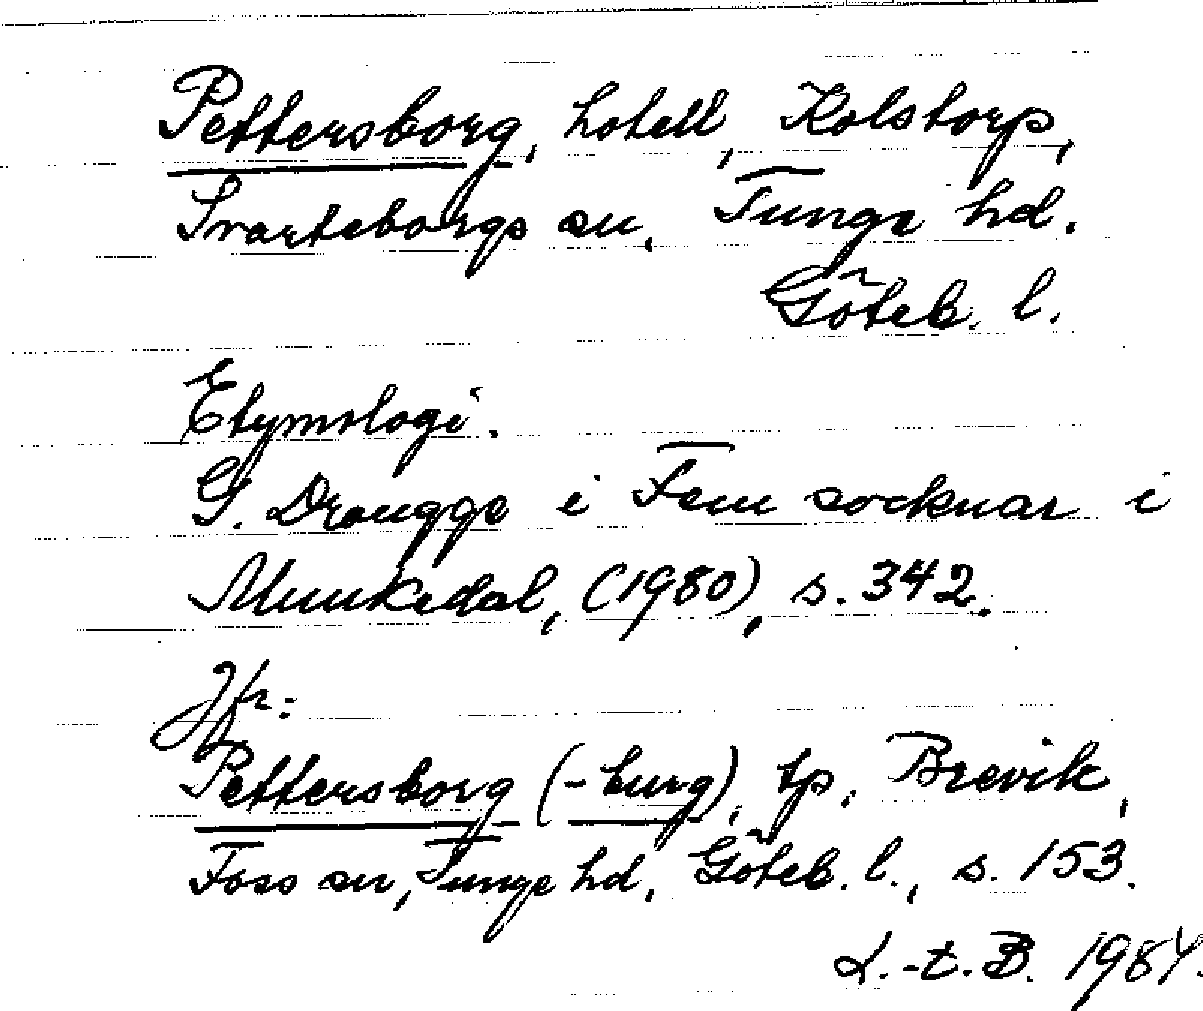 Pettersborg, hotell, Kolstorp,
Svarteborgs sn, Tunge hd.
Göteb. l.
Etymologi.
G. Drougge i Fem socknar i
Munkedal, (1980), s. 342.
Jfr:
Pettersborg (-burg), tp, Brevik,
Foss sn, Tunge hd, Göteb. l., s. 153.
L.-t. B. 1984.